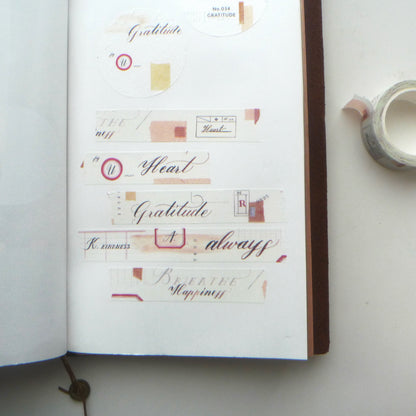 No 034
GRATITUDE
Gratitude
U
THE /
iness
Heart
U Heart
Gratitude
R
K. KINDNESS A always
BREATHE /
Happiness